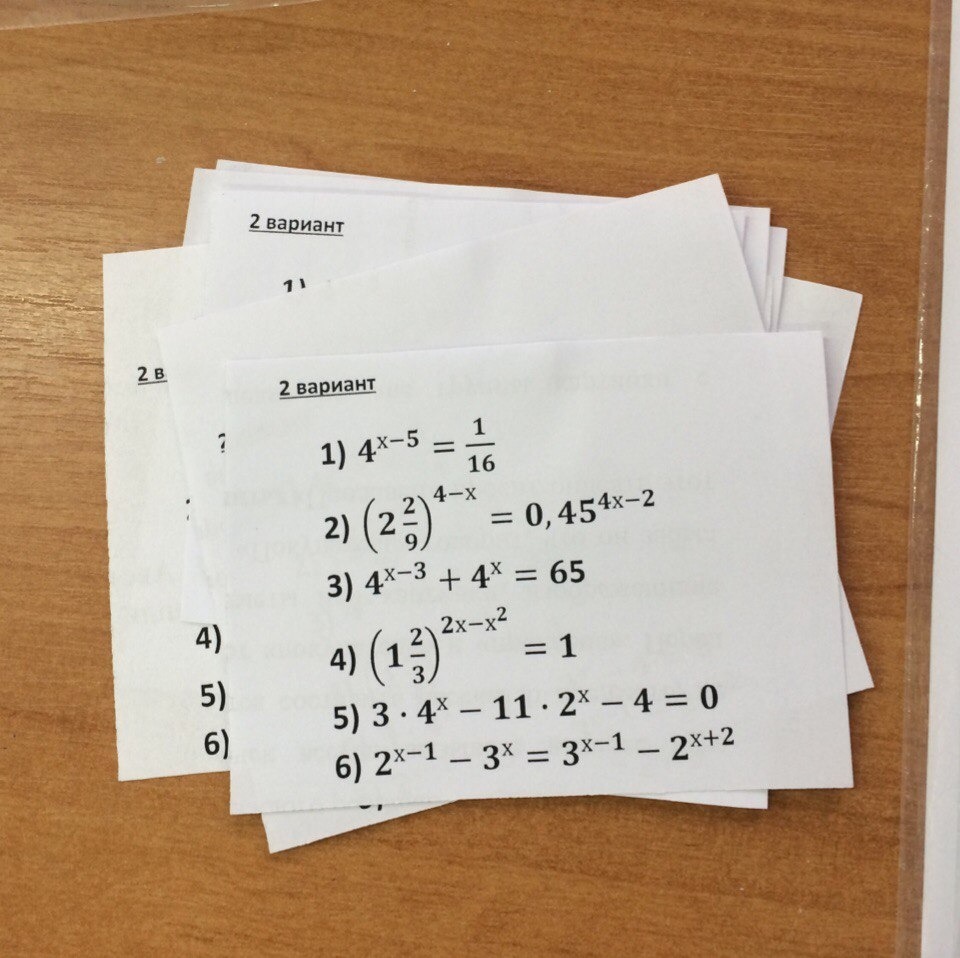 2 вариант
1)
2 в
4)
5)
6)
2 вариант
1) 4^{x−5} = 1/16
2) (2 2/9)^{4−x} = 0,45^{4x−2}
3) 4^{x−3} + 4^x = 65
4) (1 2/3)^{2x−x^2} = 1
5) 3 · 4^x − 11 · 2^x − 4 = 0
6) 2^{x−1} − 3^x = 3^{x−1} − 2^{x+2}